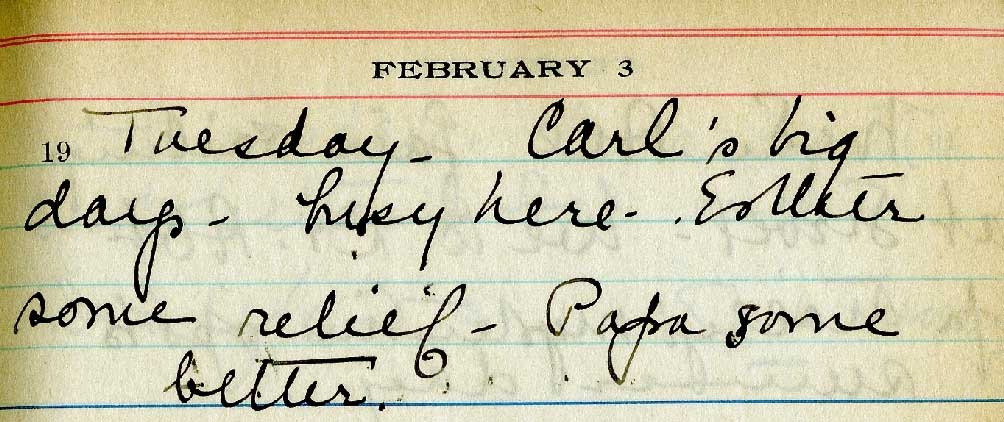 FEBRUARY 3
19 Tuesday - Carl's big
days - busy here - Esther
some relief - Papa some
better.